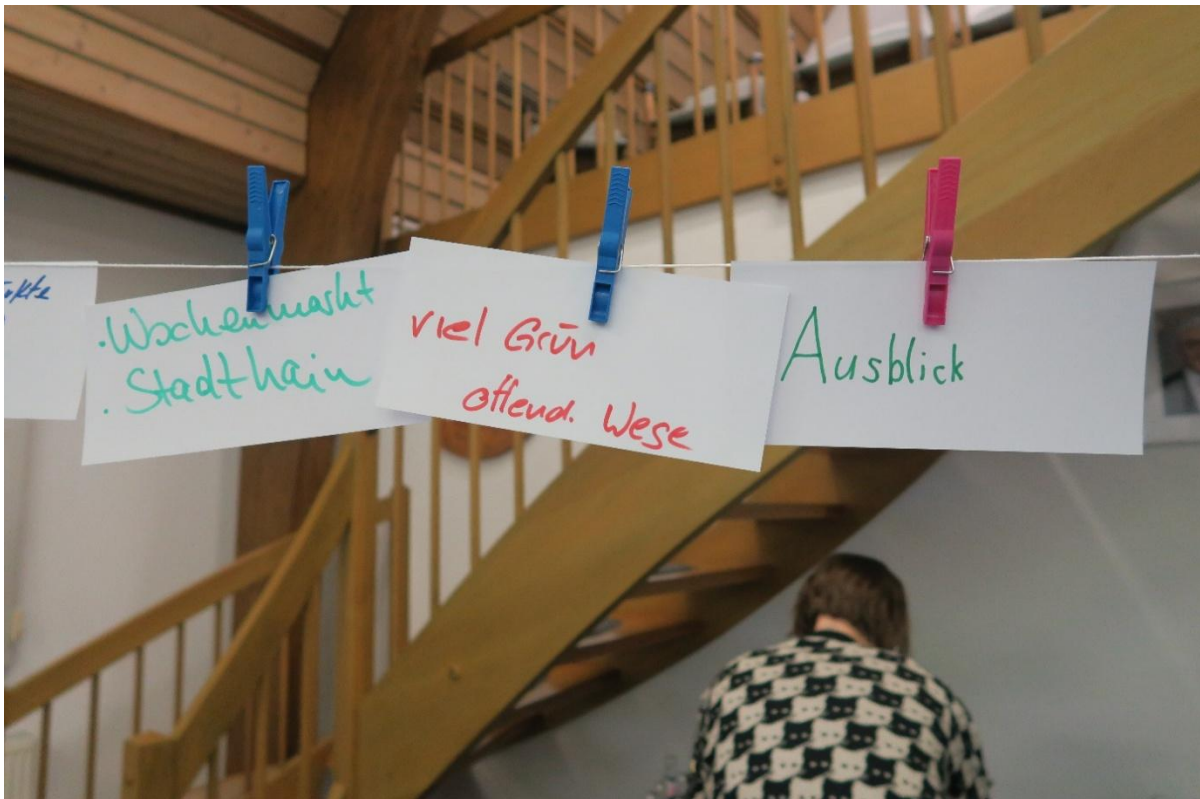 · Wochenmarkt
· Stadthain
viel Grün
öffend. Wege
Ausblick